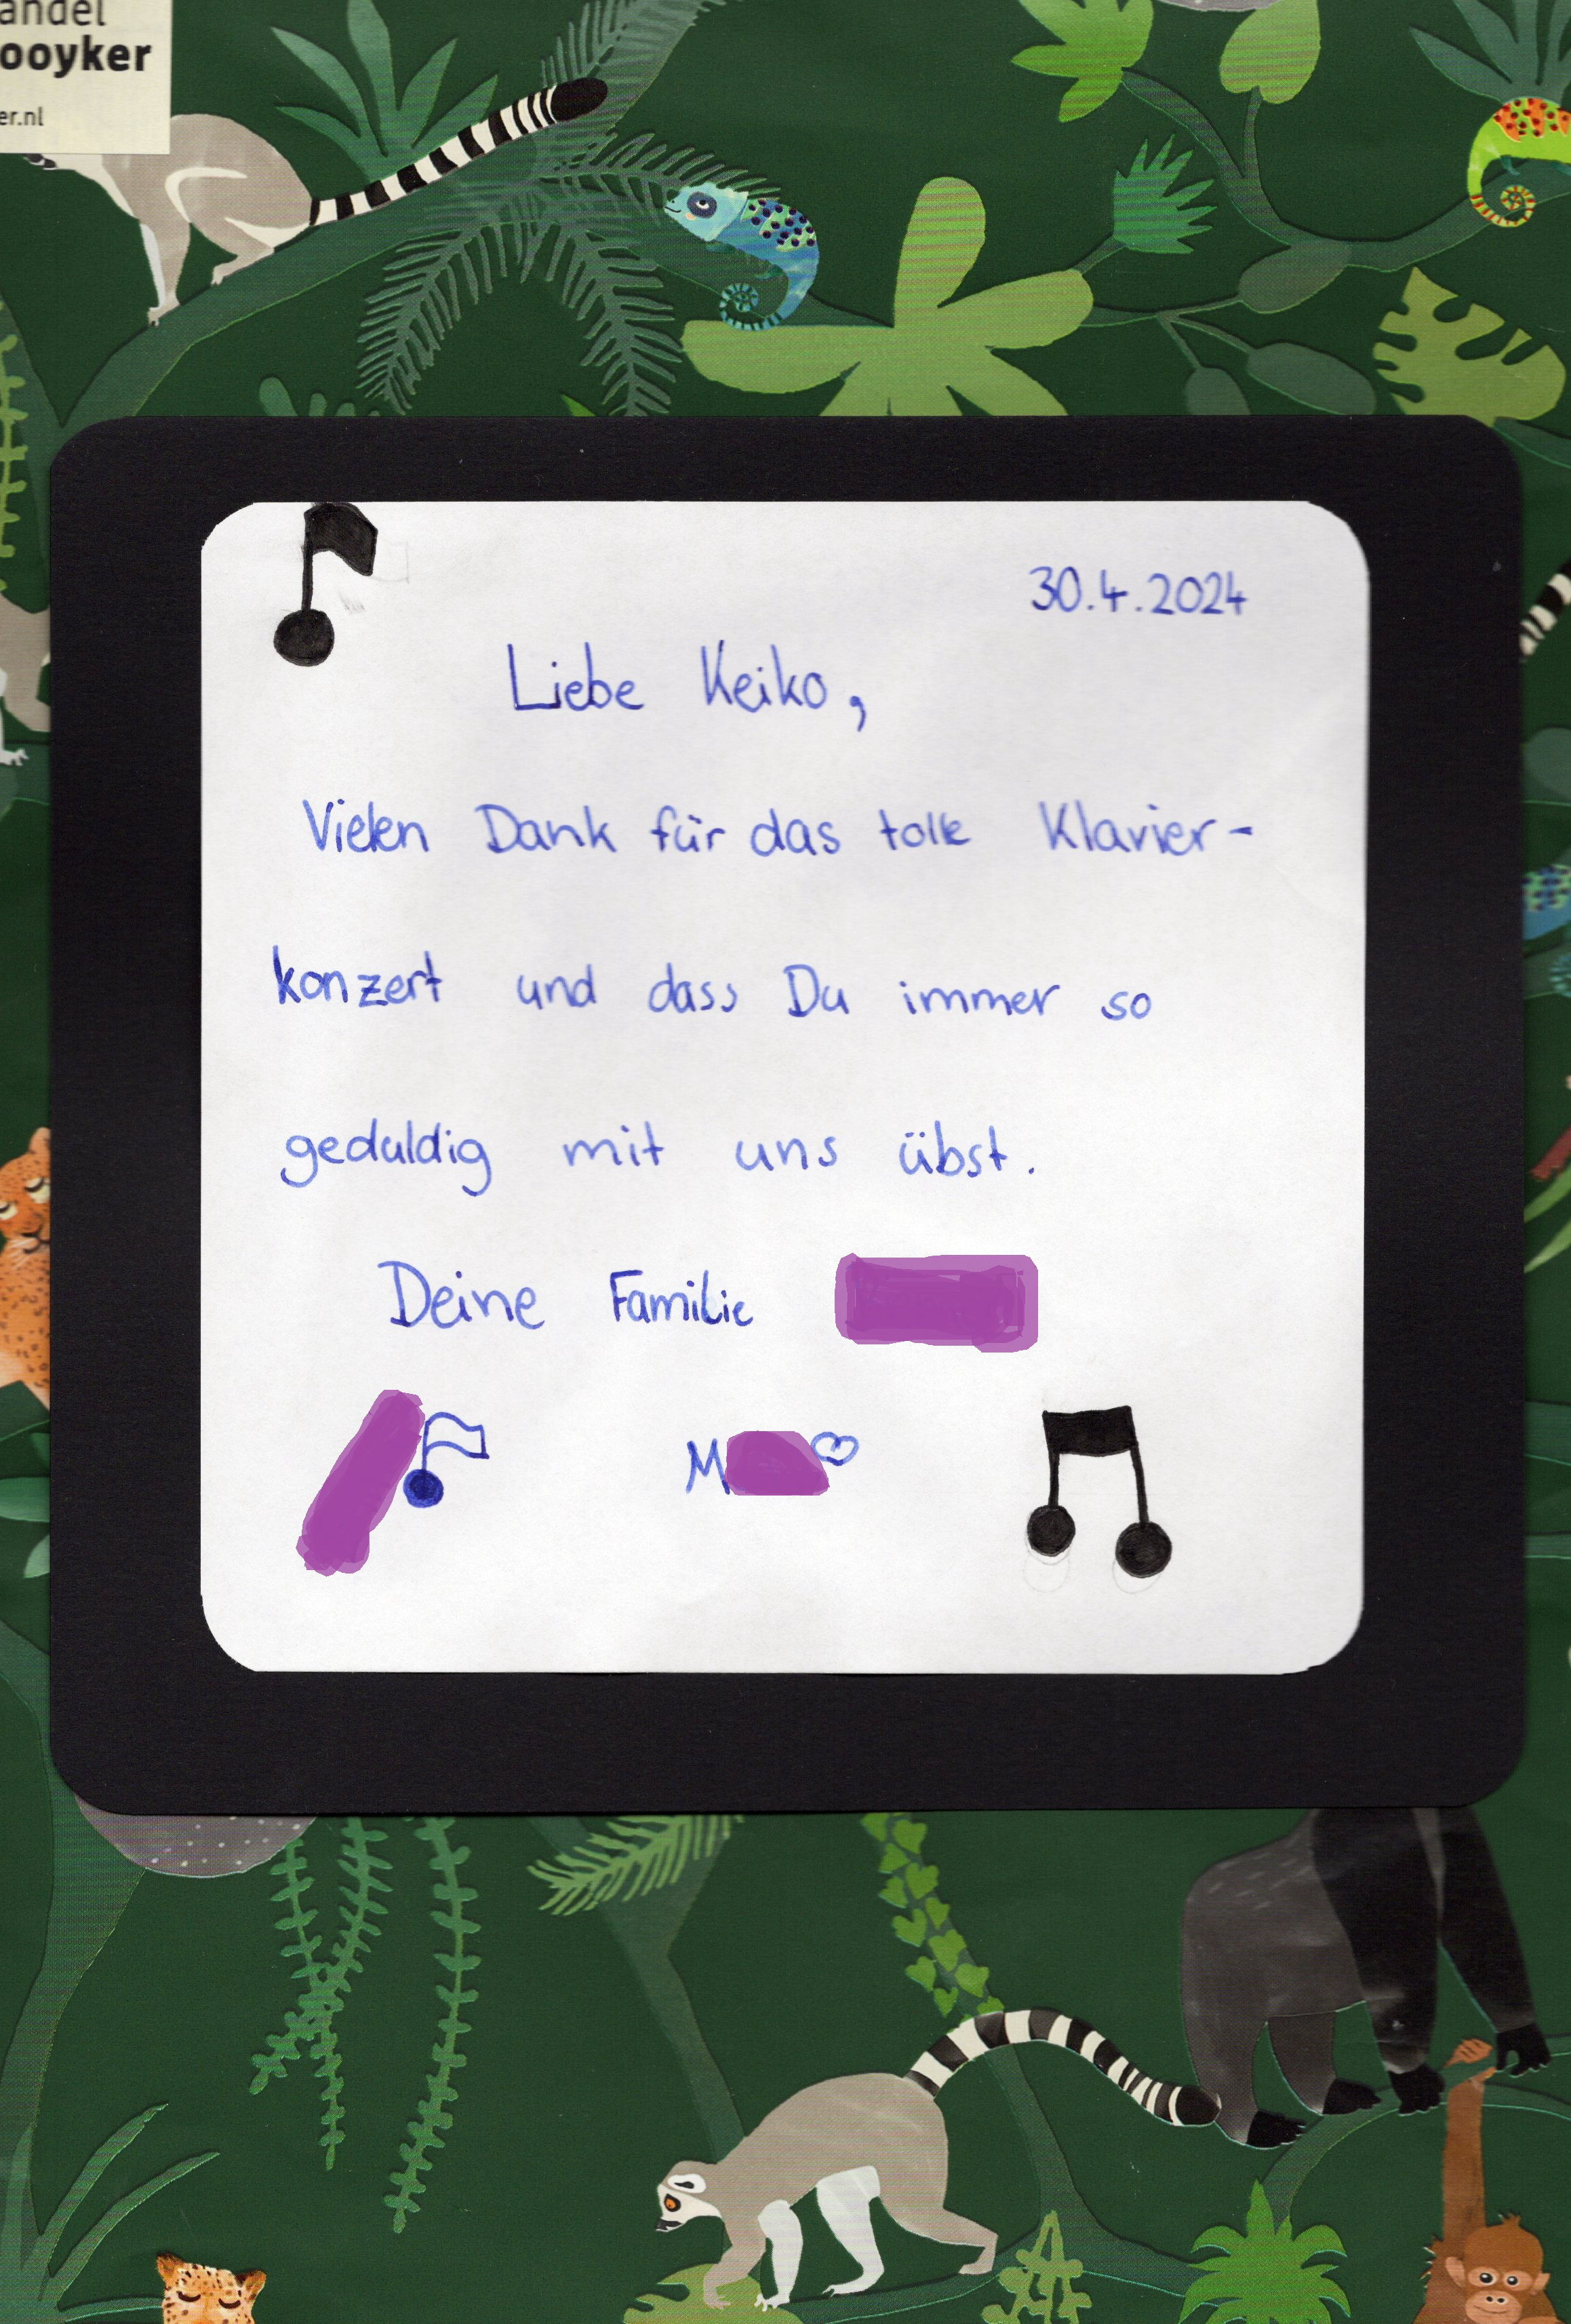 andel
ooyker
er.nl
30.4.2024
Liebe Keiko,
Vielen Dank für das tolle Klavier-
konzert und dass Du immer so
geduldig mit uns übst.
Deine Familie
M